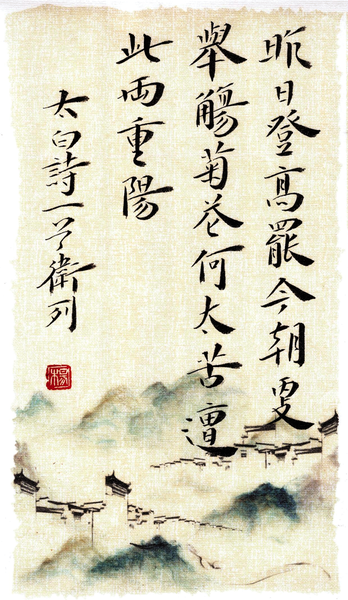 昨日登高罷今朝更
舉觴菊花何太苦遭
此兩重陽
太白詩一首衛列